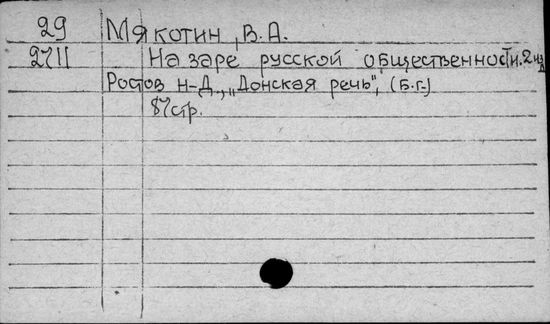 29 Мякотин, В.А.
2711 На заре русской общественности. 2 изд
Ростов н-Д., "Донская речь", (б.г.)
87стр.